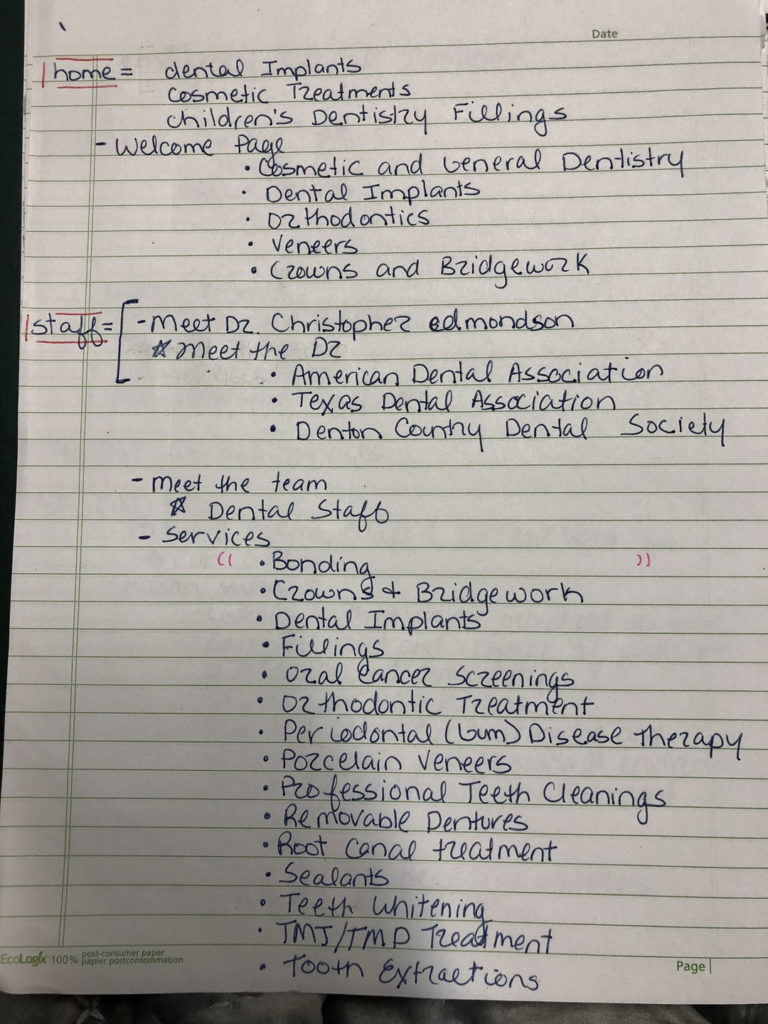 Date
home = dental Implants
Cosmetic Treatments
children's Dentistry Fillings
- Welcome Page
• Cosmetic and General Dentistry
• Dental Implants
• Orthodontics
• Veneers
• Crowns and Bridgework
staff = - Meet Dr. Christopher edmondson
☆ Meet the Dr
• American Dental Association
• Texas Dental Association
• Denton Country Dental Society
- meet the team
☆ Dental Staff
- Services
(( • Bonding ))
• Crowns & Bridgework
• Dental Implants
• Fillings
• Oral Cancer Screenings
• Orthodontic Treatment
• Periodontal (Gum) Disease Therapy
• Porcelain Veneers
• Professional Teeth Cleanings
• Removable Dentures
• Root Canal treatment
• Sealants
• Teeth Whitening
• TMJ/TMD Treatment
• Tooth Extractions
EcoLogix 100% post-consumer paper
papier postconsommation
Page